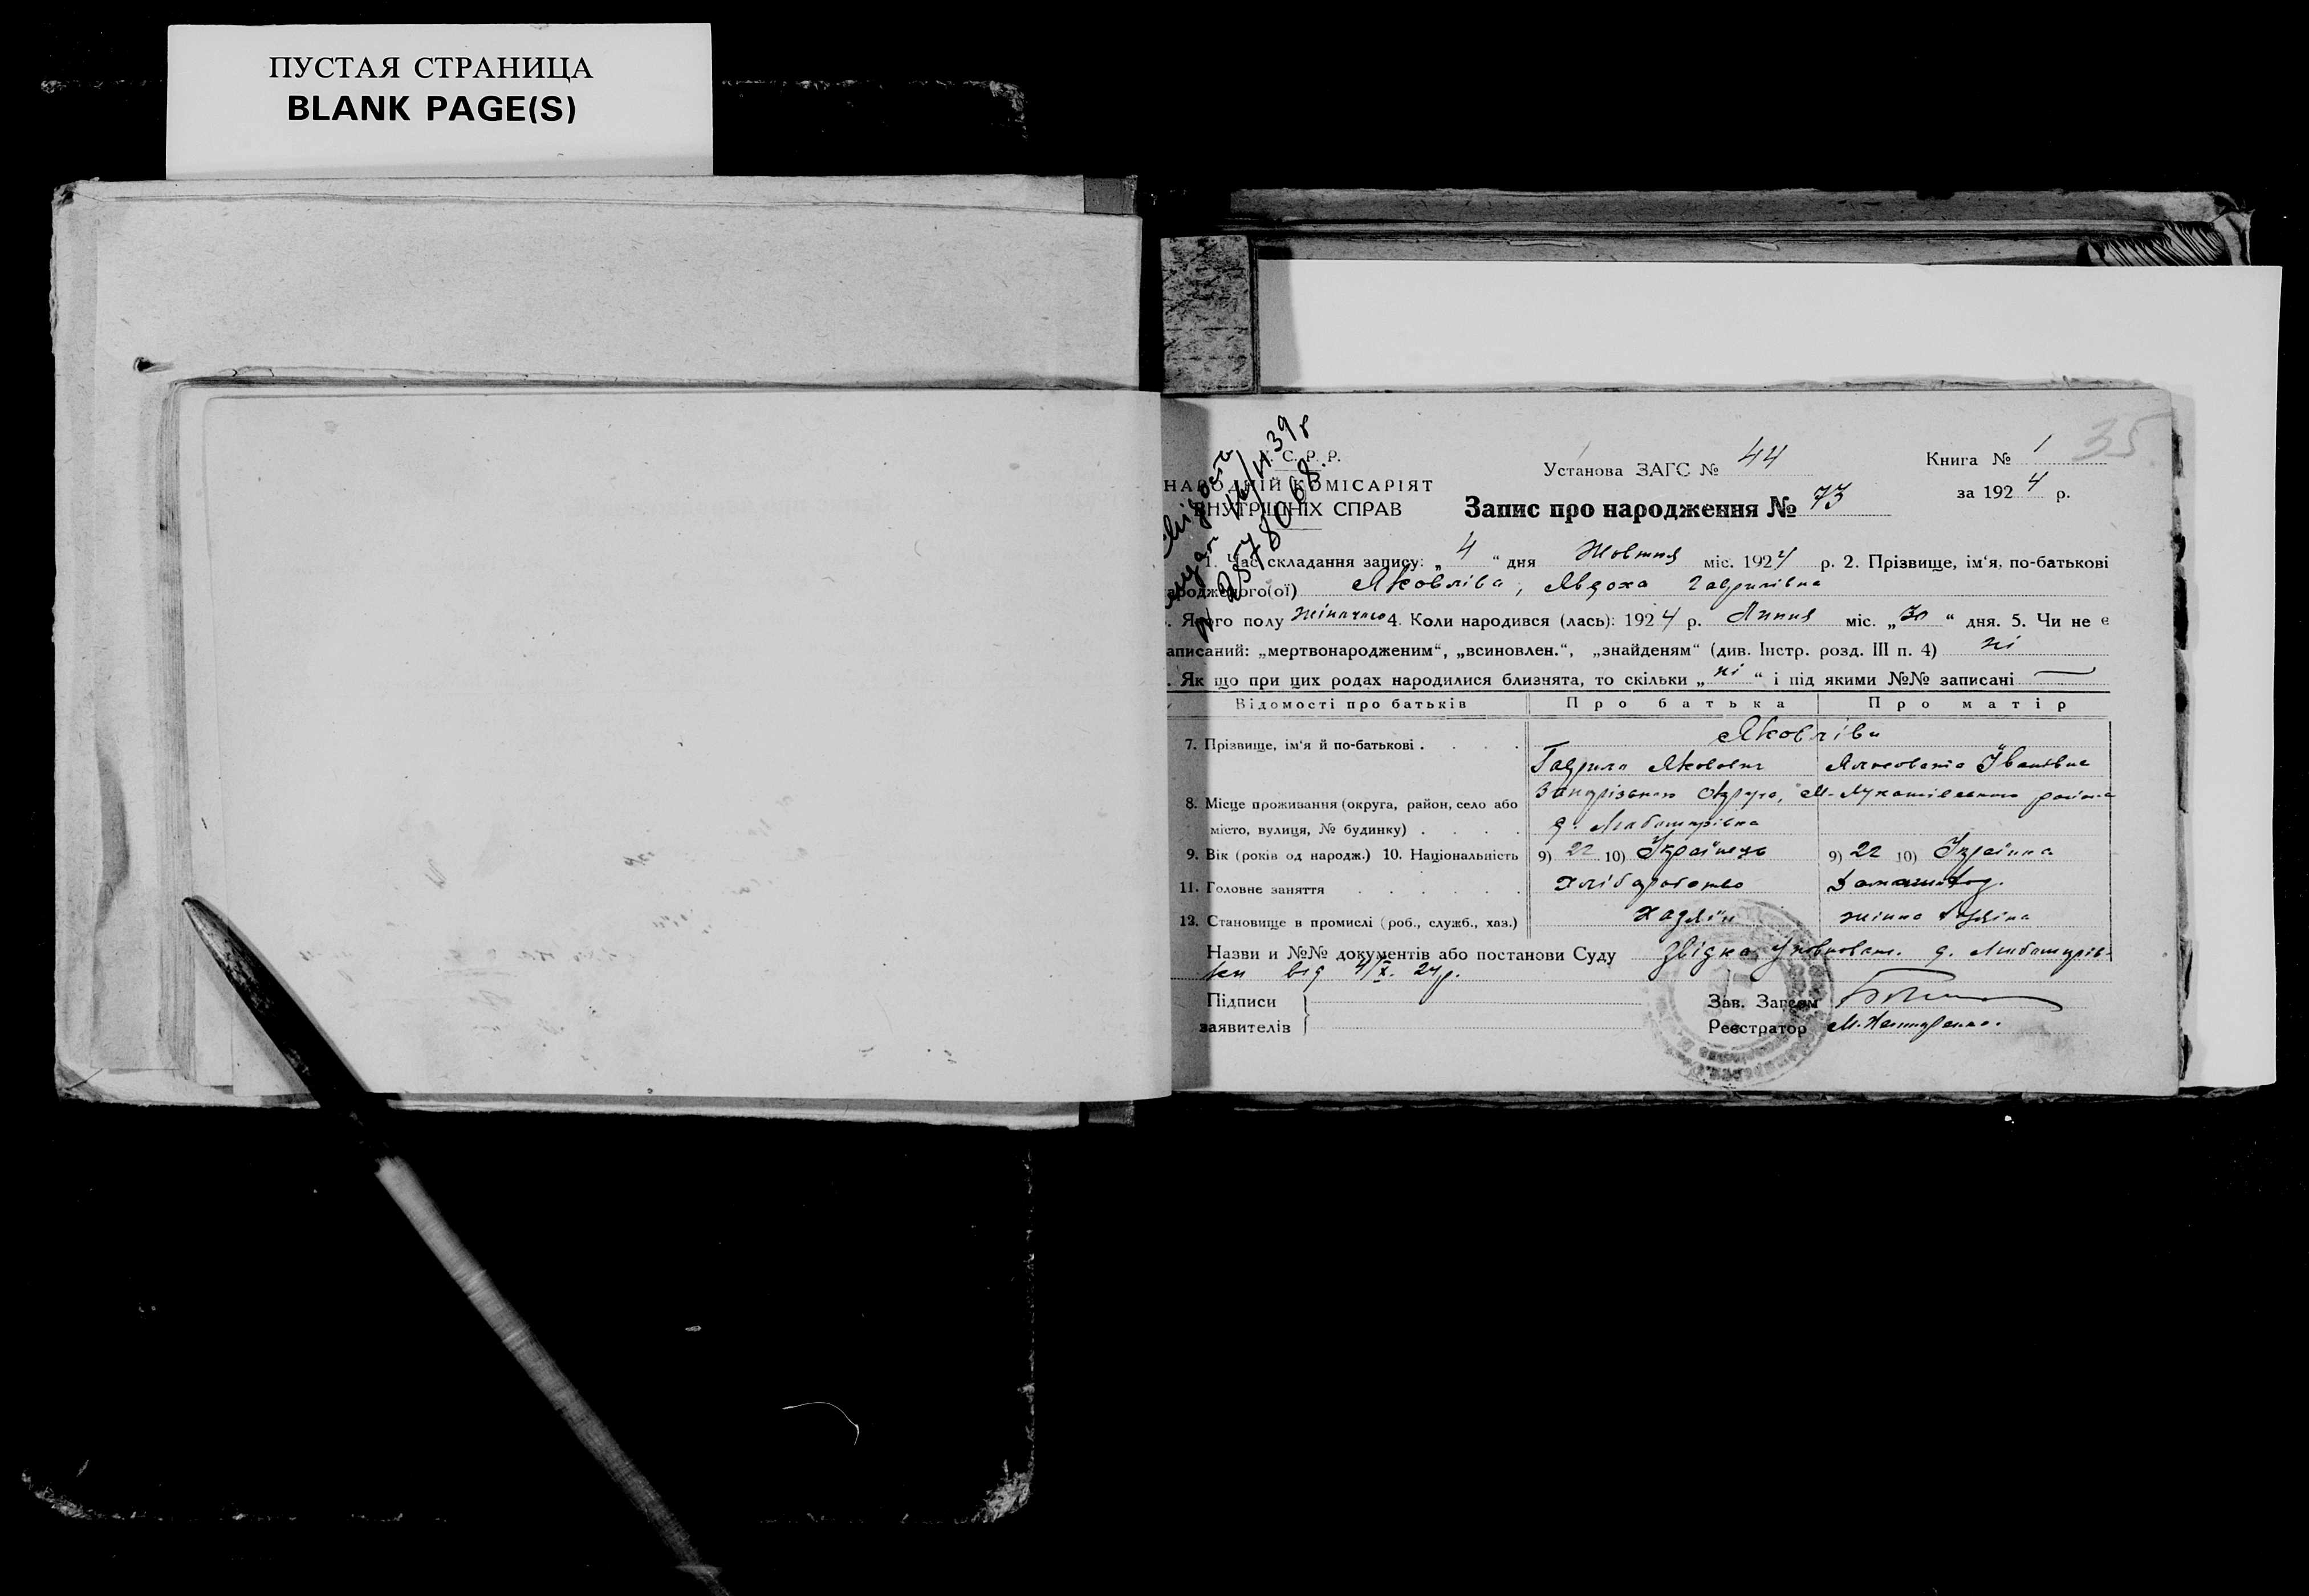 ПУСТАЯ СТРАНИЦА
BLANK PAGE(S)
35
С. Р. Р.
НАРОДНІЙ КОМІСАРІЯТ
ВНУТРІШНІХ СПРАВ
Установа ЗАГС № 44
Книга № 1
за 1924 р.
Запис про народження № 73
№ 2578068.
1. Час складання запису: „4“ дня Жовтня міс. 1924 р. 2. Прізвище, ім‘я, по-батькові
ародженого(ої) Яковліва, Явдоха Гаврилівна
Якого полу жіночого 4. Коли народився (лась): 1924 р. Липня міс. „30“ дня. 5. Чи не є
аписаний: „мертвонародженим“, „всиновлен.“, „знайденям“ (див. Інстр. розд. III п. 4) ні
. Як що при цих родах народилися близнята, то скільки „ні“ і під якими №№ записані —
Відомості про батьків Про батька Про матір
7. Прізвище, ім‘я й по-батькові . . . . Яковліви
Гаврило Яковович Івановна
8. Місце проживання (округа, район, село або Запорізького округа, района
місто, вулиця, № будинку) . . . . д.
9. Вік (років од народж.) 10. Національність 9) 22 10) Українець 9) 22 10) Українка
11. Головне заняття . . . . . . Хліборобство
13. Становище в промислі (роб., служб., хаз.) Хазяїн жінка хазяїна
Назви и №№ документів або постанови Суду д.
ки від 4/X. 24 р.
Підписи
заявителів
Зав. Загсом
Реєстратор М.